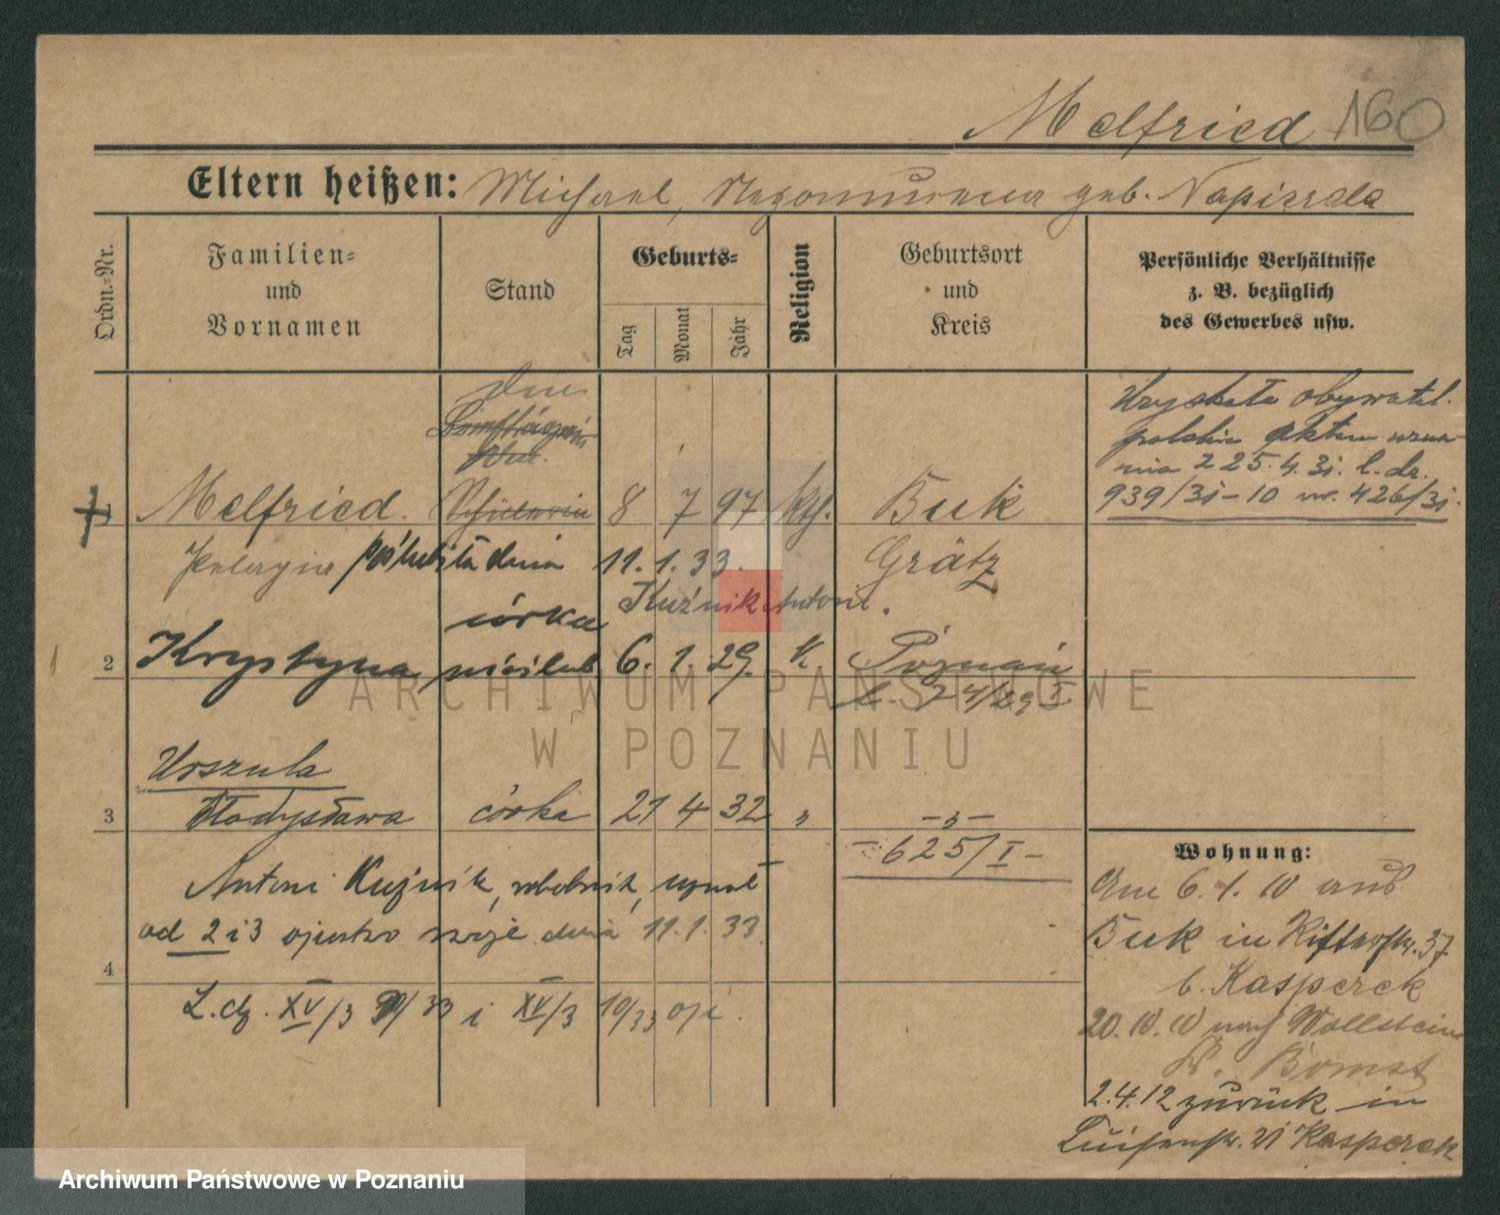 Melfried 160
Eltern heißen: Michael, Nepomucena geb. Napierala
Ordn.-Nr.
Familien-
und
Vornamen
Stand
Geburts-
Tag
Monat
Jahr
Religion
Geburtsort
und
Kreis
Persönliche Verhältnisse
z. B. bezüglich
des Gewerbes usw.
Uzyskała obywatel.
polskie aktem uzna-
nia z 25.4.31. l. dz.
939/31-10 nr. 426/31.
1 Melfried. Schülerin 8 7 97 kth. Buk
Pelagia poślubiła dnia 11.1.33. Grätz
Kuźnik Antoni.
córka
2 Krystyna nieślub 6. 1. 29. k. Poznań
74/29 I
Urszula
3 Władysława córka 21 4 32 " -"-
-625/I-
Antoni Kuźnik, robotnik, uznał
od 2 i 3 ojcostwo swoje dnia 11.1.33.
4
L.dz. XV/3 /33 i XV/3 10/33
Wohnung:
Am 6.1.10 aus
Buk in Ritterstr. 37
b. Kasperek
20.10.10 nach Wollstein
Kr. Bomst
2.4.12 zurück in
Luisenstr. 21 Kasperek
ARCHIWUM PAŃSTWOWE
W POZNANIU
Archiwum Państwowe w Poznaniu